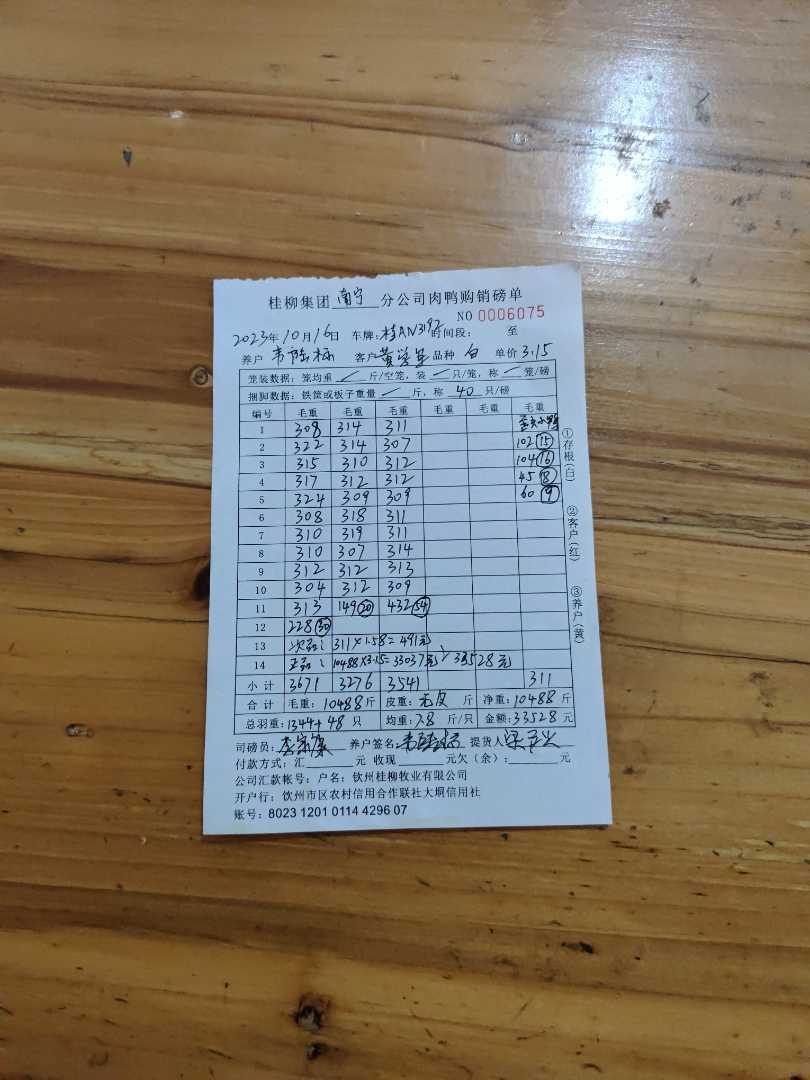 桂柳集团 南宁 分公司肉鸭购销磅单
NO 0006075
2023年10月16日 车牌:桂AN3192 时间段: 至
养户 韦陆标 客户 黄 品种 白 单价 3.15
笼装数据:笼均重 / 斤/空笼,装 / 只/笼,称 / 笼/磅
捆脚数据:铁筐或板子重量 / 斤,称 40 只/磅
编号 毛重 毛重 毛重 毛重 毛重 毛重
1 308 314 311
2 322 314 307 102 (15)
3 315 310 312 104 (16)
4 317 312 312 45 (8)
5 324 309 309 60 (9)
6 308 318 311
7 310 319 311
8 310 307 314
9 312 312 313
10 304 312 309
11 313 149 (20) 432 (54)
12 228 (30)
13 次品: 311×1.58=491元
14 正品: 10488×3.15=33037元 33528元
小计 3671 3276 3541 311
合计 毛重:10488斤 皮重:毛皮 斤 净重:10488斤
总羽重:1344+48 只 均重:7.8 斤/只 金额:33528元
司磅员: 养户签名: 提货人
付款方式:汇 元 收现 元欠(余): 元
公司汇款帐号:户名:钦州桂柳牧业有限公司
开户行:钦州市区农村信用合作联社大垌信用社
账号:8023 1201 0114 4296 07
①存根(白)
②客户(红)
③养户(黄)